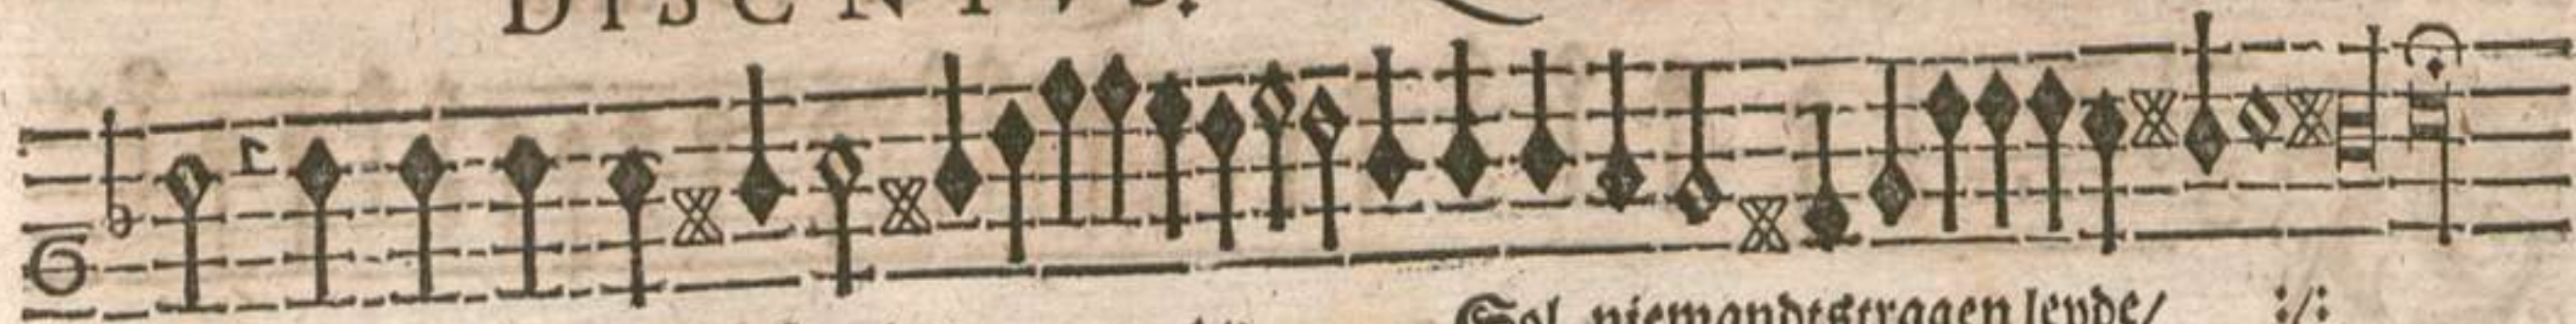 DISC N T V S.
Sol niemandts tragen leyde/ :/: